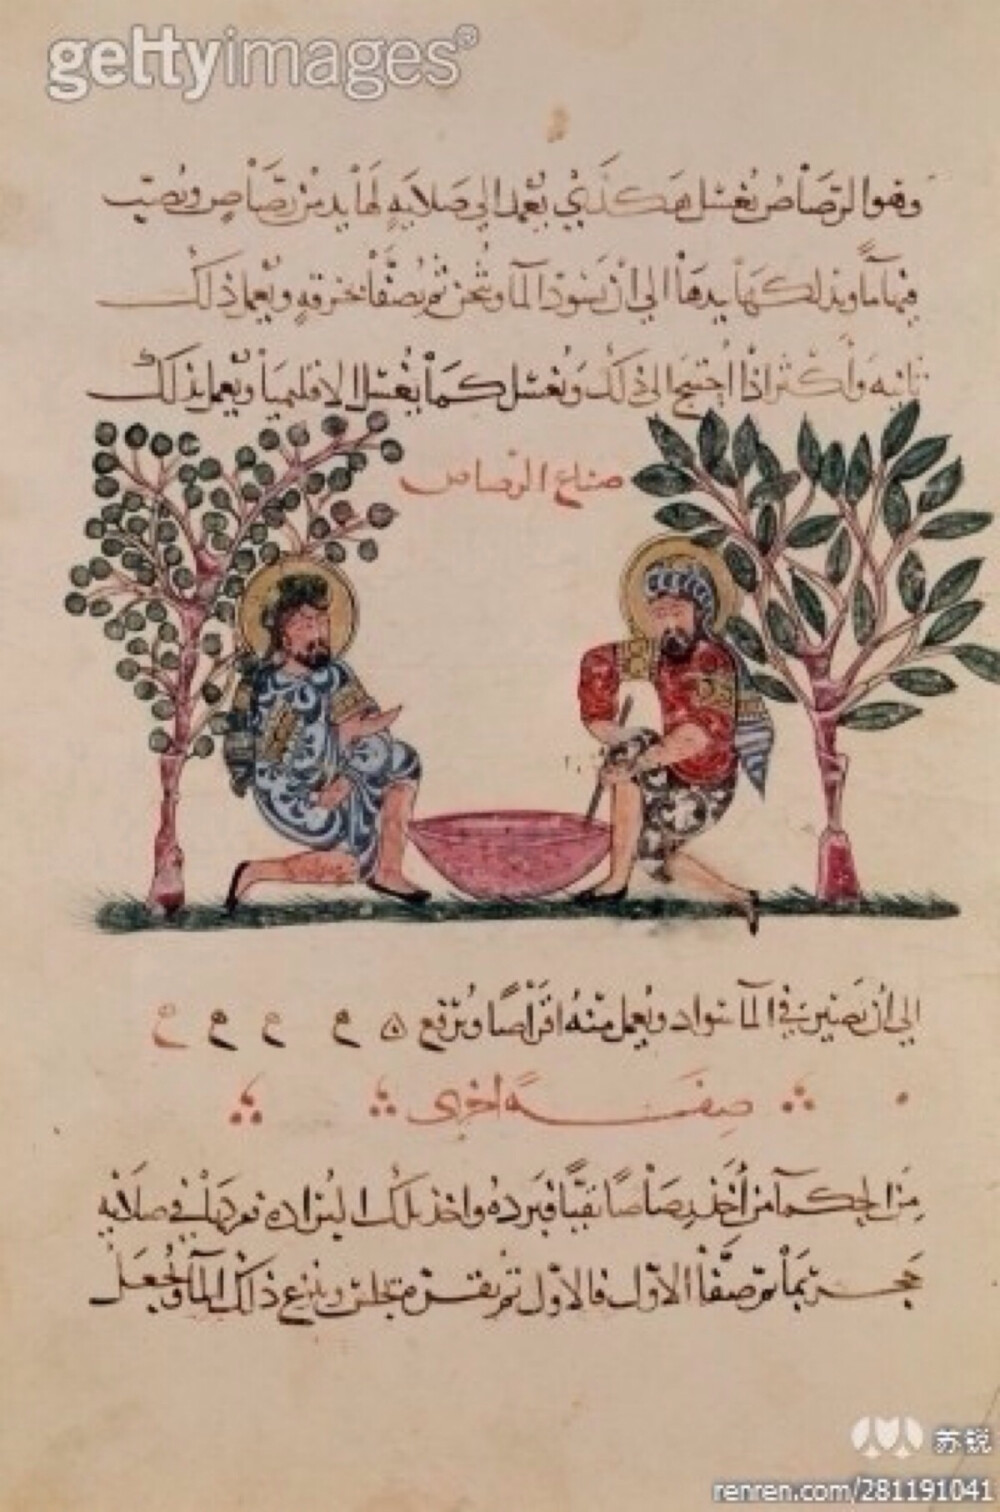 gettyimages®
وهو الرصاص يغسل هكذي يعمد الى صلايه لها يد من رصاص ويصب
فيها ما ويدلكها بيدها الى ان يسود الما ويثخن ثم يصفا بخرقه ويعمل ذلك
ثانيه واكثر اذا احتيج الى ذلك ويغسل كما يغسل الاقليميا ويعمل ذلك
صناع الرصاص
الى ان يصير في الما سواد ويعمل منه اقراصا وترفع ه
صفة اخرى
من الحكما من اخذ رصاصا نقيا فبرده واخذ تلك البراده في صلايه
حجر بما ثم صفا الاول فالاول ثم ذلك الما ويجعل
苏锐
renren.com/281191041